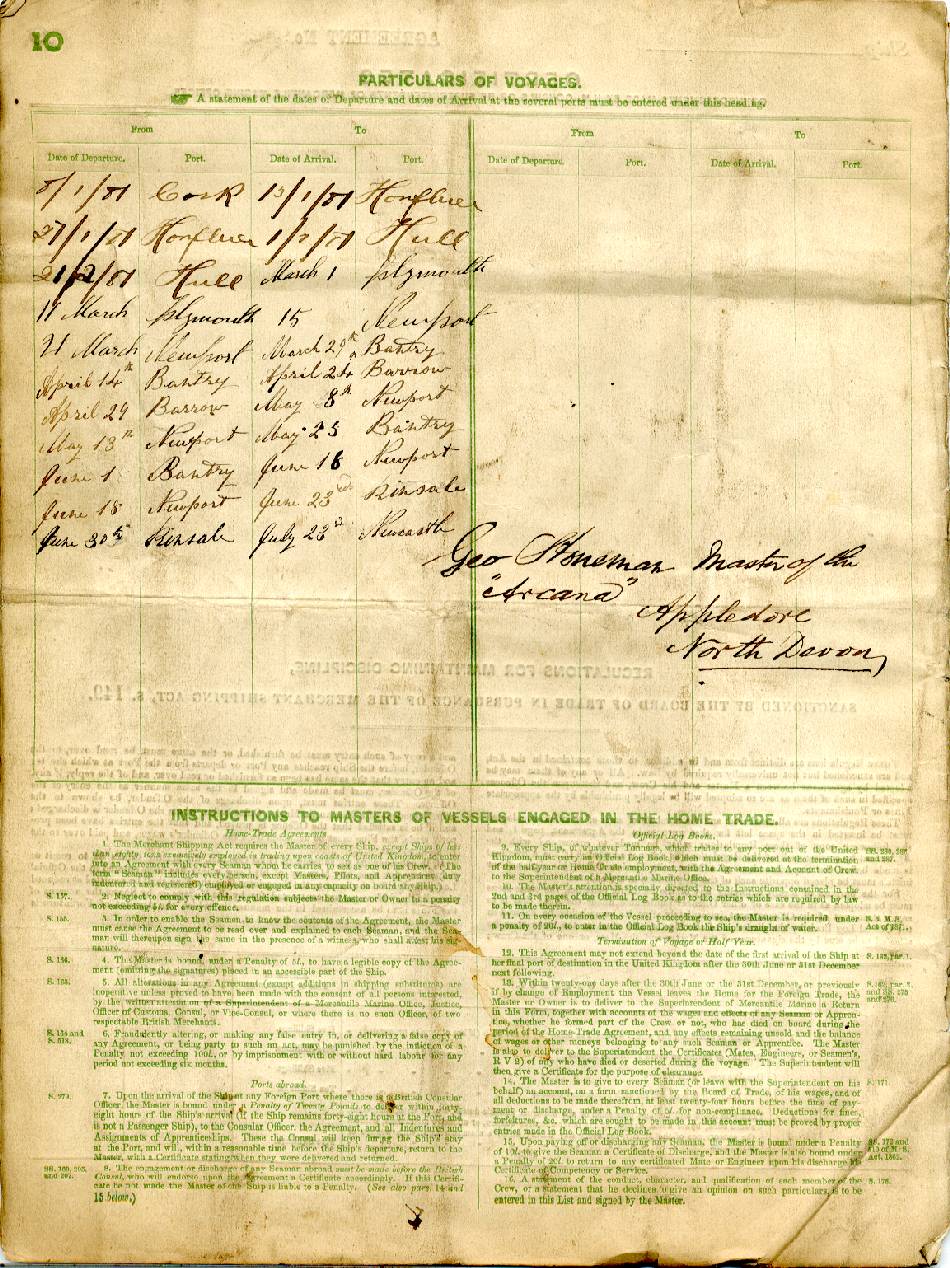 10
PARTICULARS OF VOYAGES.
A statement of the dates of Departure and dates of Arrival at the several ports must be entered under this heading.
From To From To
Date of Departure. Port. Date of Arrival. Port. Date of Departure. Port. Date of Arrival. Port.
/1/01 Cork 13/1/01 Honfleur
27/1/01 Honfleur 1/2/01 Hull
21/2/01 Hull March 1 Plymouth
11 March Plymouth 15 Newport
21 March Newport March 29th Bantry
April 14th Bantry April 24 Barrow
April 29 Barrow May 8th Newport
May 13th Newport May 25 Bantry
June 1 Bantry June 16 Newport
June 18 Newport June 23 Kinsale
June 30th Kinsale July 23rd Newcastle
Geo Honeman Master of the
"Arcana"
Appledore
North Devon
INSTRUCTIONS TO MASTERS OF VESSELS ENGAGED IN THE HOME TRADE.
Home-Trade Agreements
1. The Merchant Shipping Act requires the Master of every Ship, except Ships of less
than eighty tons exclusively employed in trading upon coasts of United Kingdom, to enter
into an Agreement with every Seaman which he carries to sea as one of his Crew. (The
term "Seaman" includes every person, except Masters, Pilots, and Apprentices duly
indentured and registered) employed or engaged in any capacity on board any Ship.)
S. 157. 2. Neglect to comply with this regulation subjects the Master or Owner to a penalty
not exceeding 5l. for every offence.
3. In order to enable the Seamen to know the contents of the Agreement, the Master
must cause the Agreement to be read over and explained to each Seaman, and the Sea-
man will thereupon sign the same in the presence of a witness, who shall attest his sig-
nature.
4. The Master is bound, under a Penalty of 5l., to have a legible copy of the Agree-
ment (omitting the signatures) placed in an accessible part of the Ship.
5. All alterations in any Agreement (except additions in shipping substitutes) are
inoperative unless proved to have been made with the consent of all persons interested,
by the written attestation of a Superintendent of a Mercantile Marine Office, Justice,
Officer of Customs, Consul, or Vice-Consul, or where there is no such Officer, of two
respectable British Merchants.
6. Fraudently altering, or making any false entry in, or delivering a false copy of
any Agreement, or being party to such an act, may be punished by the infliction of a
Penalty not exceeding 100l., or by imprisonment with or without hard labour for any
period not exceeding six months.
Ports abroad.
7. Upon the arrival of the Ship at any Foreign Port where there is a British Consular
Officer, the Master is bound under a Penalty of Twenty Pounds to deliver within forty-
eight hours of the Ship's arrival (if the Ship remains forty-eight hours at the Port, and
is not a Passenger Ship), to the Consular Officer, the Agreement, and all Indentures and
Assignments of Apprenticeships. These the Consul will keep during the Ship's stay
at the Port, and will, within a reasonable time before the Ship's departure, return to the
Master, with a Certificate stating when they were delivered and returned.
8. The engagement or discharge of any Seaman abroad must be made before the British
Consul, who will endorse upon the Agreement a Certificate accordingly. If this Certifi-
cate be not made the Master of the Ship is liable to a Penalty. (See also pars. 14 and
15 below.)
Official Log Books.
9. Every Ship, of whatever Tonnage, which trades to any port out of the United
Kingdom, must carry an Official Log Book, which must be delivered at the termination
of the half-year or Home Trade employment, with the Agreement and Account of Crew,
to the Superintendent of a Mercantile Marine Office.
10. The Master's attention is specially directed to the Instructions contained in the
2nd and 3rd pages of the Official Log Book as to the entries which are required by law
to be made therein.
11. On every occasion of the Vessel proceeding to sea, the Master is required, under
a penalty of 20l., to enter in the Official Log Book the Ship's draught of water.
Termination of Voyage or Half Year.
12. This Agreement may not extend beyond the date of the first arrival of the Ship at
her final port of destination in the United Kingdom after the 30th June or 31st December
next following.
13. Within twenty-one days after the 30th June or the 31st December, or previously
if by change of Employment the Vessel leaves the Home for the Foreign Trade, the
Master or Owner is to deliver to the Superintendent of Mercantile Marine a Return
in this Form, together with accounts of the wages and effects of any Seaman or Appren-
tice, whether he formed part of the Crew or not, who has died on board during the
period of the Home-Trade Agreement, and any effects remaining unsold and the balance
of wages or other moneys belonging to any such Seaman or Apprentice. The Master
is also to deliver to the Superintendent the Certificates (Mates, Engineers, or Seamen's,
R V 2) of any who have died or deserted during the voyage. The Superintendent will
then give a Certificate for the purpose of clearance.
14. The Master is to give to every Seaman (or leave with the Superintendent on his
behalf) an account, on a form sanctioned by the Board of Trade, of his wages, and of
all deductions to be made therefrom, at least twenty-four hours before the time of pay-
ment or discharge, under a Penalty of 5l. for non-compliance. Deductions for fines,
forfeitures, &c. which are sought to be made in this account must be proved by proper
entries made in the Official Log Book.
15. Upon paying off or discharging any Seaman, the Master is bound under a Penalty
of 10l. to give the Seaman a Certificate of Discharge, and the Master is also bound under
a Penalty of 20l. to return to any certificated Mate or Engineer upon his discharge his
Certificate of Competency or Service.
16. A statement of the conduct, character, and qualification of each member of the
Crew, or a statement that he declines to give an opinion on such particulars, is to be
entered in this List and signed by the Master.